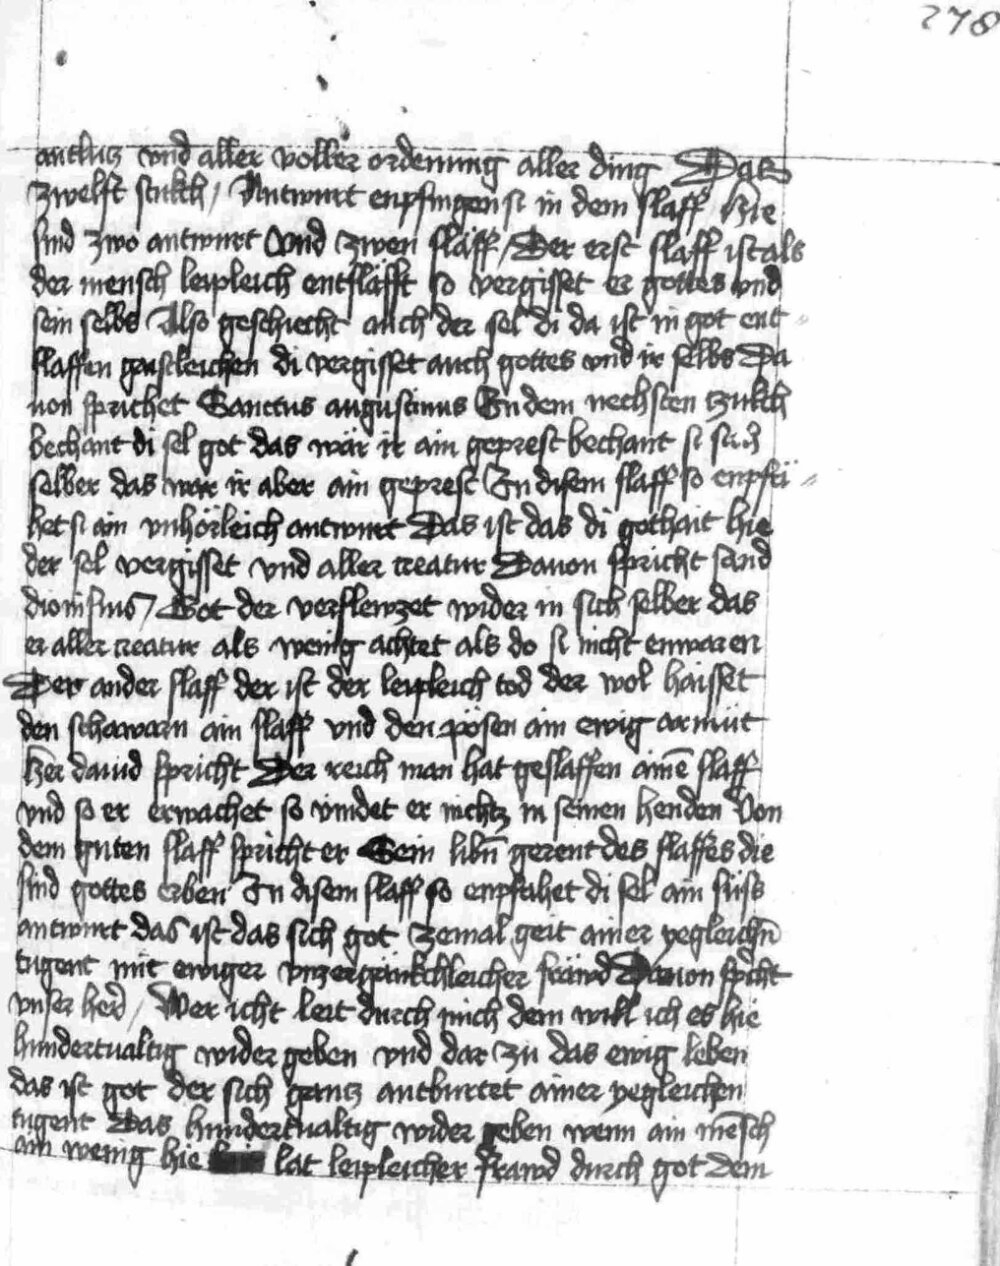 278
antlutz vnd aller voller ordenung aller ding Das
zwelft stukch / Antwurt enpfingen si in dem slaff Hie
sind zwo antwurt Vnd zwen släff / Der erst slaff ist als
der mensch leipleich entsläfft so vergisset er gottes vnd
sein selbs Also geschiecht auch der sel di da ist in got ent
slaffen gaistleichen di vergisset auch gottes vnd ir selbs Da
uon sprichet Sanctus augustinus In dem nechsten tzukch
bechant di sel got das wär ir ain geprest bechant si sich
selber das wär ir aber ain geprest In disem slaff so enpfä
het si ain vnhörleich antwurt Das ist das di gothait hie
der sel vergisset vnd aller creatur Dauon spricht sand
dionisius / Got der verflewzet wider in sich selber das
er aller creatur als wenig achtet als do si nicht enwaren
Der ander slaff der ist der leipleich tod der wol haisset
den ain slaff vnd den pösen ain ewig armüt
her dauid spricht Der reich man hat geslaffen ainē slaff
vnd so er erwachet so vindet er nichtz in seinen henden Von
dem guten slaff spricht er Sein libn̄ gerent des slaffes die
sind gottes erben In disem slaff so enpfahet di sel ain süss
antwurt das ist das sich got zemal geit ainer yegleichn̄
tugent mit ewiger vnzergänkchleicher fräwd Dauon spricht
vnser herr / Wer icht leit durch mich dem will ich es hie
hundertualtig wider geben vnd dar zü das ewig leben
das ist got der sich gantz antburtet ainer yegleichen
tugent Das hundertualtig wider geben wenn ain mensch
ain wenig hie lat leipleicher frawd durch got dem